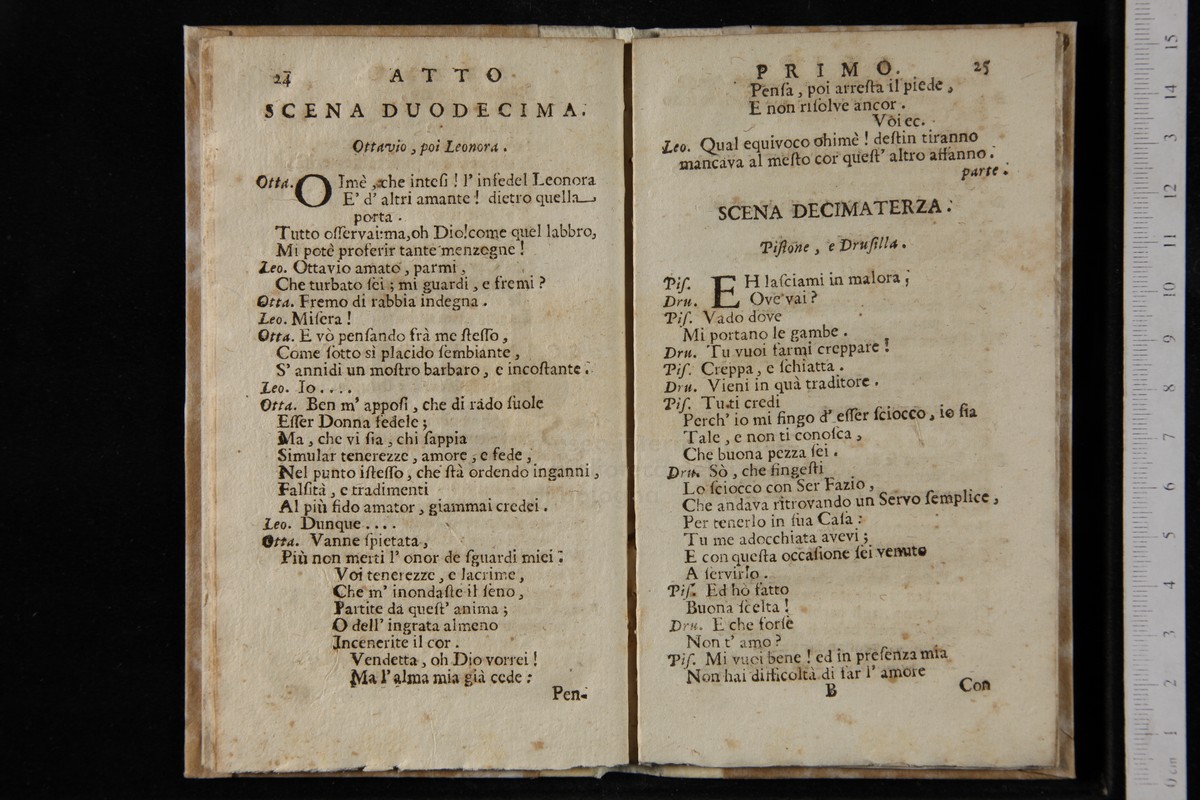 24 ATTO
SCENA DUODECIMA.
Ottavio, poi Leonora.
Otta. OImè, che intesi! l' infedel Leonora
E' d' altri amante! dietro quella
porta.
Tutto osservai: ma, oh Dio! come quel labbro,
Mi potè proferir tante menzogne!
Leo. Ottavio amato, parmi,
Che turbato sei; mi guardi, e fremi?
Otta. Fremo di rabbia indegna.
Leo. Misera!
Otta. E vò pensando frà me stesso,
Come sotto sì placido sembiante,
S' annidi un mostro barbaro, e incostante.
Leo. Io....
Otta. Ben m' apposi, che di rado suole
Esser Donna fedele;
Ma, che vi sia, chi sappia
Simular tenerezze, amore, e fede,
Nel punto istesso, che stà ordendo inganni,
Falsità, e tradimenti
Al più fido amator, giammai credei.
Leo. Dunque....
Otta. Vanne spietata,
Più non merti l' onor de sguardi miei.
Voi tenerezze, e lacrime,
Che m' inondaste il seno,
Partite da quest' anima;
O dell' ingrata almeno
Incenerite il cor.
Vendetta, oh Dio vorrei!
Ma l' alma mia già cede:
Pen-
PRIMO. 25
Pensa, poi arresta il piede,
E non risolve ancor.
Voi ec.
Leo. Qual equivoco ohimè! destin tiranno
mancava al mesto cor quest' altro affanno.
parte.
SCENA DECIMATERZA.
Pistone, e Drusilla.
Pis. EH lasciami in malora;
Dru. Ove vai?
Pis. Vado dove
Mi portano le gambe.
Dru. Tu vuoi farmi creppare!
Pis. Creppa, e schiatta.
Dru. Vieni in quà traditore.
Pis. Tu ti credi
Perch' io mi fingo d' esser sciocco, io sia
Tale, e non ti conosca,
Che buona pezza sei.
Dru. Sò, che fingesti
Lo sciocco con Ser Fazio,
Che andava ritrovando un Servo semplice,
Per tenerlo in sua Casa:
Tu me adocchiata avevi;
E con questa occasione sei venuto
A servirlo.
Pis. Ed hò fatto
Buona scelta!
Dru. E che forse
Non t' amo?
Pis. Mi vuoi bene! ed in presenza mia
Non hai difficoltà di far l' amore
B Con